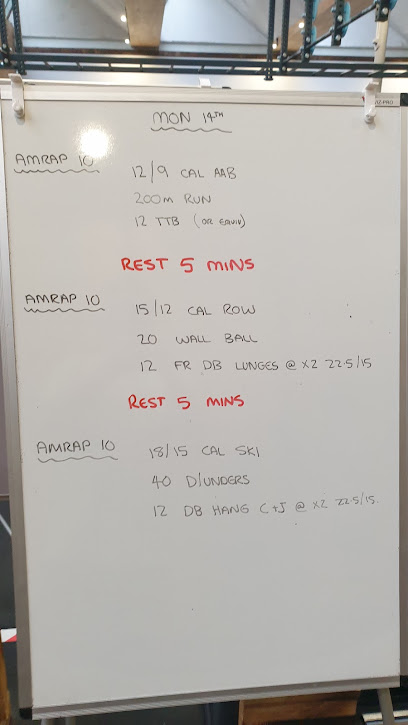 MON 14TH
AMRAP 10
12/9 CAL AAB
200m RUN
12 TTB (OR EQUIV)
REST 5 MINS
AMRAP 10
15/12 CAL ROW
20 WALL BALL
12 FR DB LUNGES @ X2 22.5/15
REST 5 MINS
AMRAP 10
18/15 CAL SKI
40 D/UNDERS
12 DB HANG C+J @ X2 22.5/15.